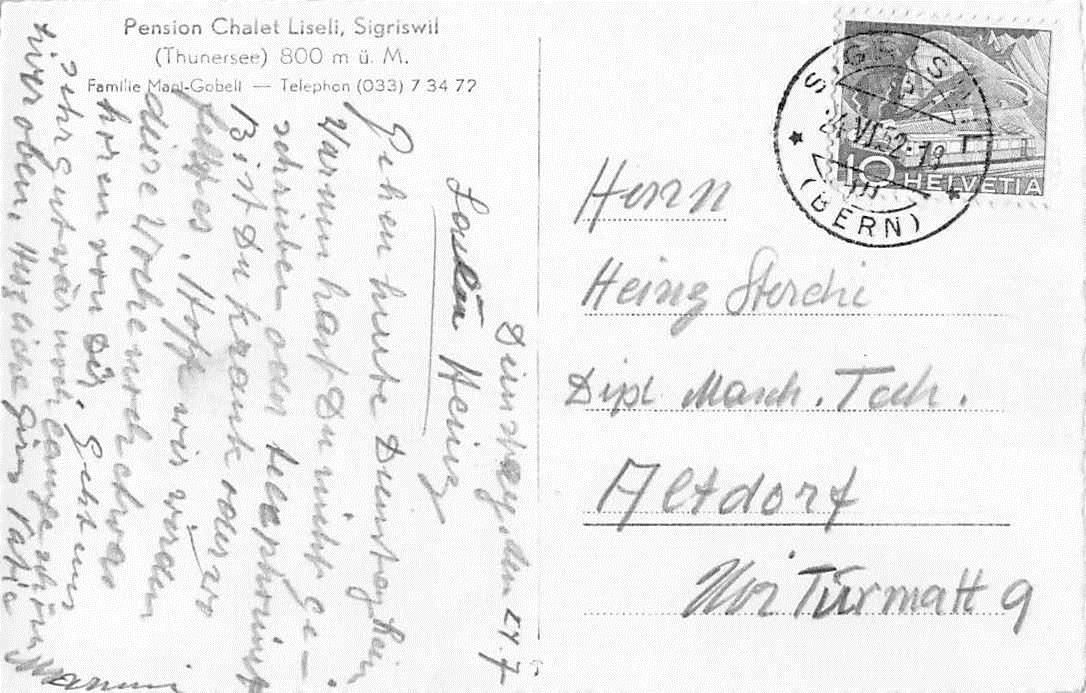 Pension Chalet Liseli, Sigriswil
(Thunersee) 800 m ü. M.
Familie Mani-Gobeli — Telephon (033) 7 34 72
Dienstag, den 24. 7
Lieben Heinz
Gehen heute Dienstag heim
Warum hast Du nicht ge-
schrieben oder telephoniert
Bist Du krank oder wo
fehlt es. Hoffe wir werden
diese Woche noch etwas
hören von Dir. Geht uns
sehr gut wär noch lange schön
hier oben. Herzliche Grüsse Vati
Mammi
SIGRISWIL
24.VI.52-18
(BERN)
10 HELVETIA
Herrn
Heinz Sterchi
Dipl Masch. Tech.
Altdorf
Uri Turmatt 9